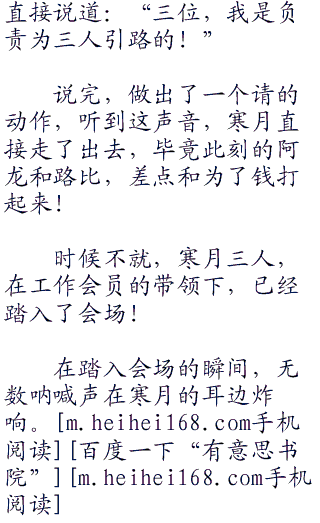 直接说道：“三位，我是负
责为三人引路的！”
说完，做出了一个请的
动作，听到这声音，寒月直
接走了出去，毕竟此刻的阿
龙和路比，差点和为了钱打
起来！
时候不就，寒月三人，
在工作会员的带领下，已经
踏入了会场！
在踏入会场的瞬间，无
数呐喊声在寒月的耳边炸
响。[m.heihei168.com手机
阅读][百度一下“有意思书
院”][m.heihei168.com手机
阅读]